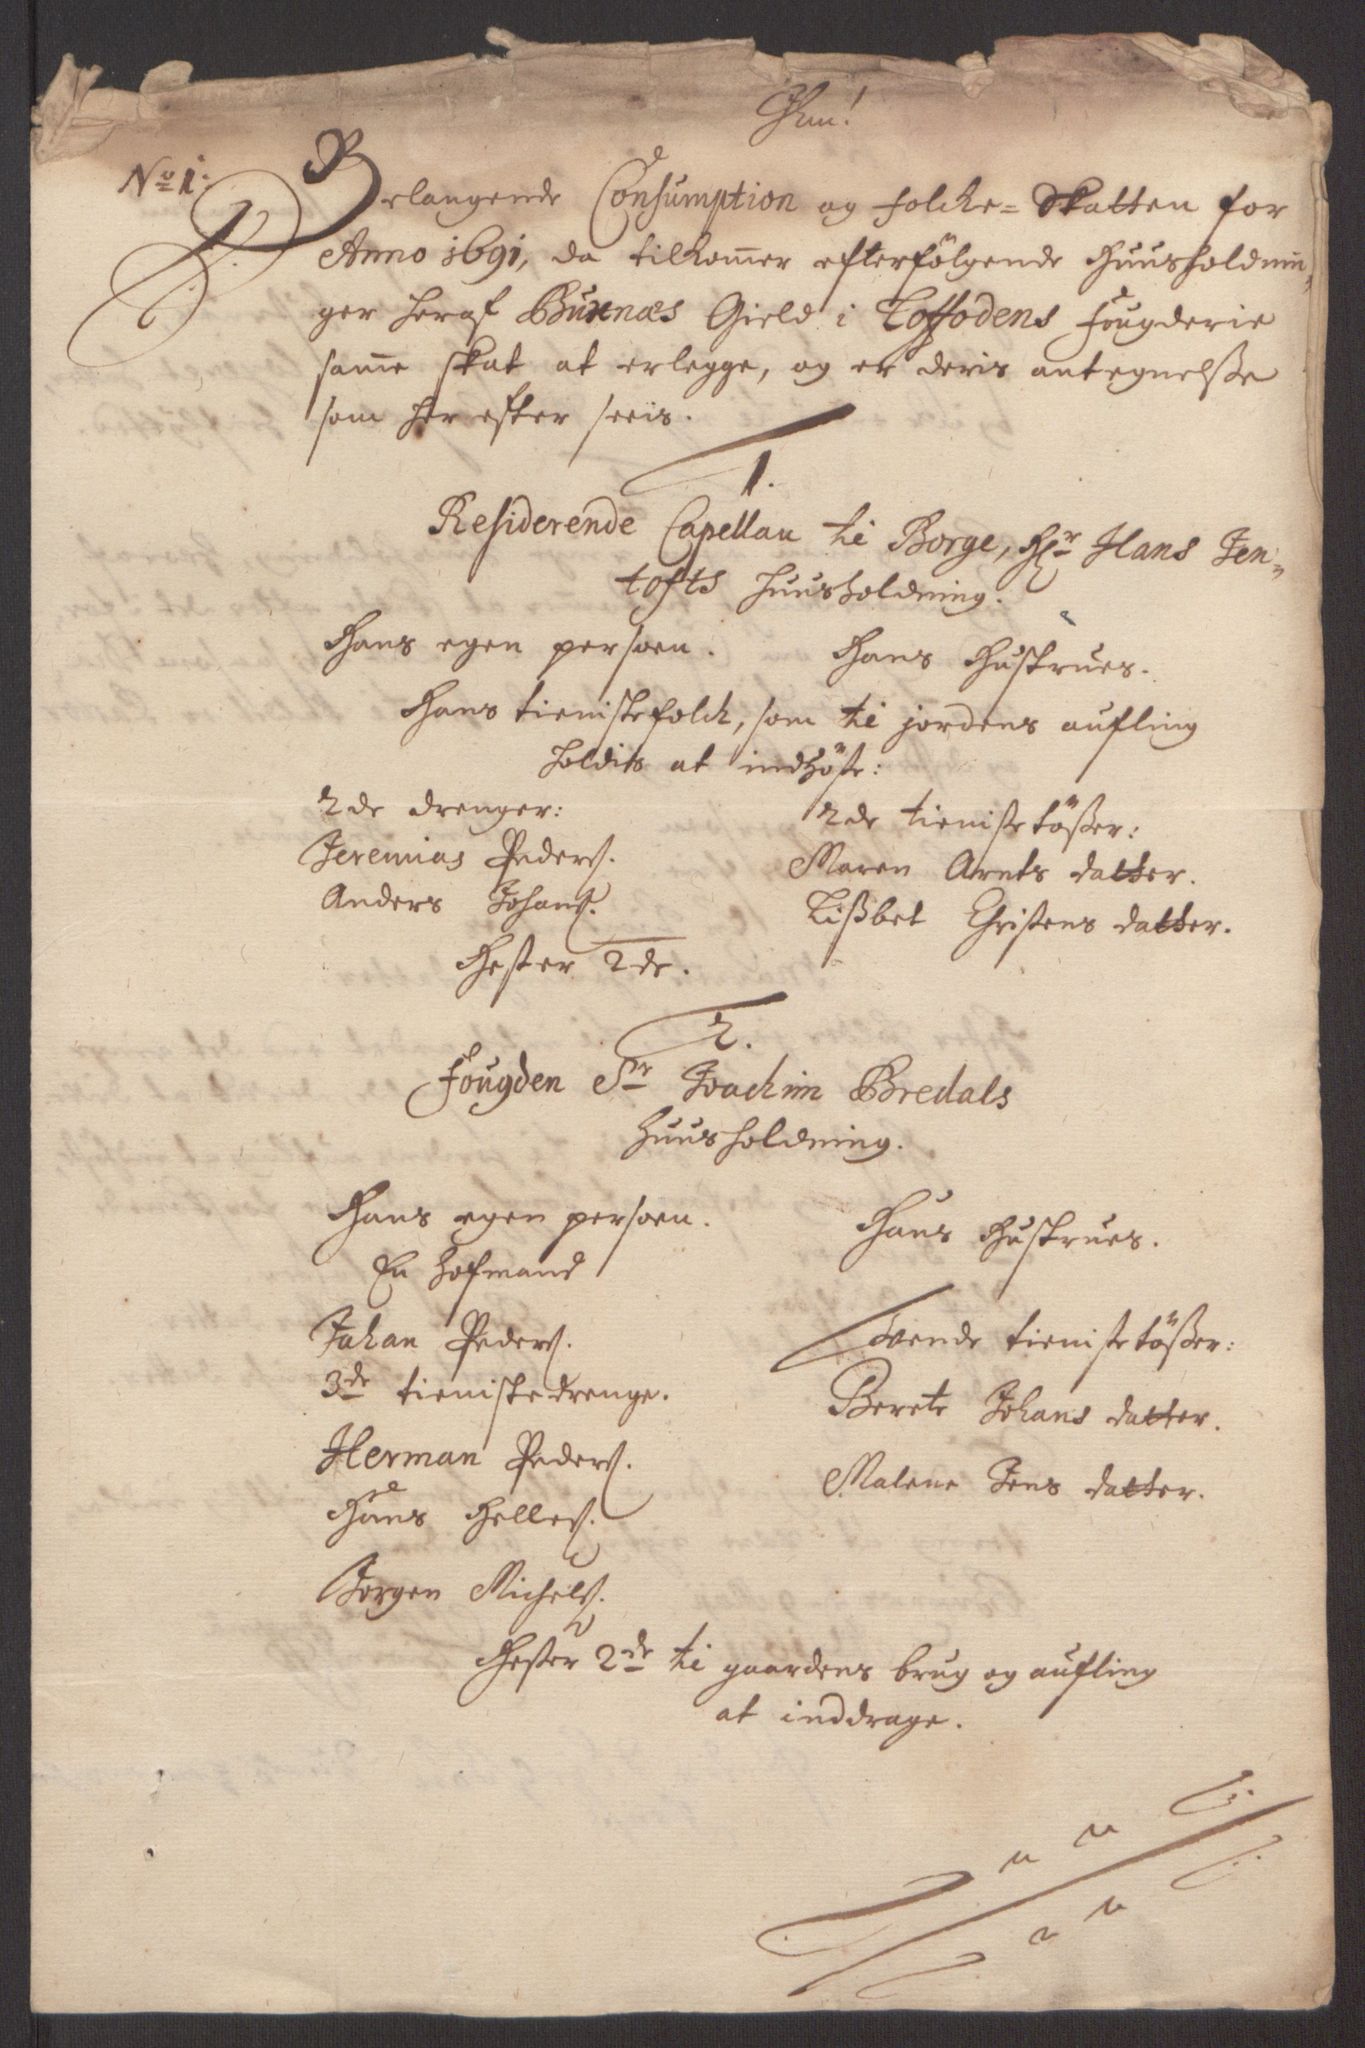 No 1:
Berlangende Consumption og folche= Skatten for
Anno 1691, da tilkommer efterfölgende Huusholdnin=
ger heraf Buxnæs Gield i Loffodens fougderie
samme skat at erlegge, og er deris antegnelsse
som her efter seeis.
1.
Residerende Capellan til Borge, Hr Hans Jen=
tofts huusholdning.
Hans egen persoen. Hans Hustrues.
Hans tienistefolch, som til jordens aufling
holdits at indhöste:
2de drenger: 2de tienistetößer:
Jeremias Peders. Maren Arnts datter.
Anders Johans. Lißbet Christens datter.
Hester 2de.
2.
Fougden Sr Joachim Bredals
huusholdning.
Hans egen persoen. Hans Hustrues.
En hofmand
Johan Peders. Tvende tienistetößer:
3de tienistedrenge. Berete Johans datter.
Herman Peders. Malene Jens datter.
Hans Helles.
Jörgen Michels.
Hester 2de til gaardens brug og aufling
at inddrage.